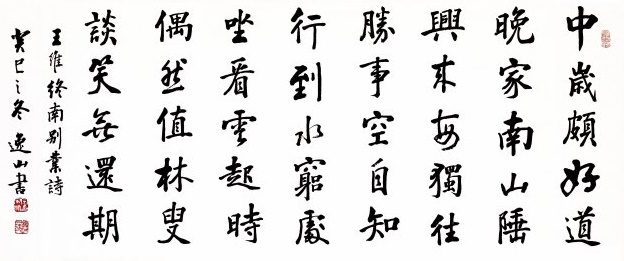 中歲頗好道
晚家南山陲
興來每獨往
勝事空自知
行到水窮處
坐看雲起時
偶然值林叟
談笑無還期
王維終南別業詩
癸巳之冬逸山書